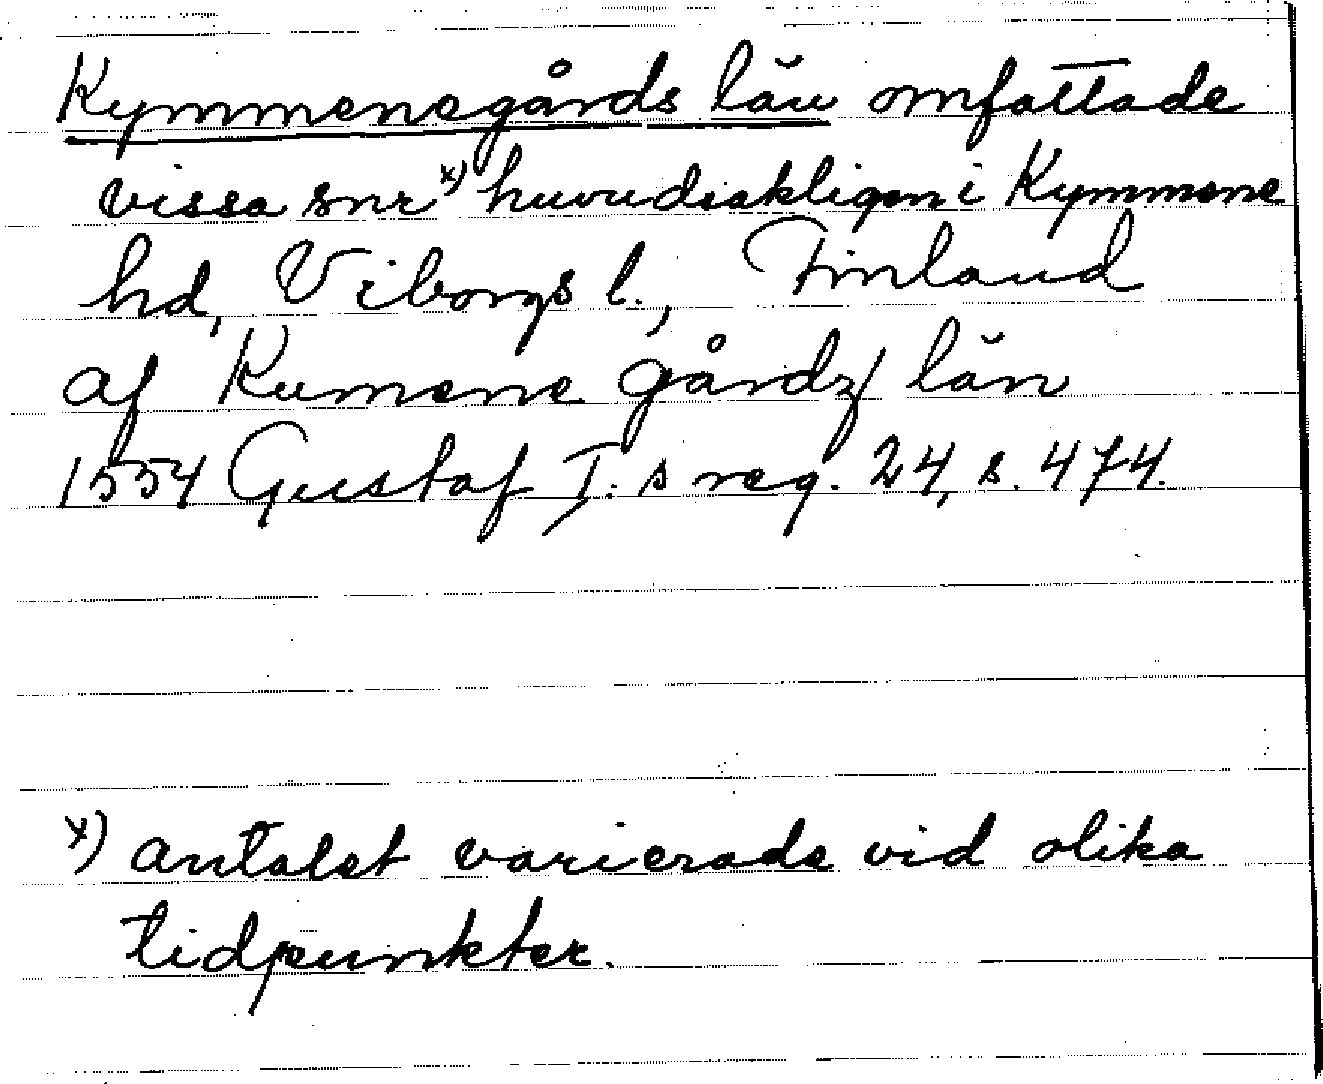 Kymmenegårds län omfattade
vissa snr x) huvudsakligen i Kymmene
hd, Viborgs l., Finland
af Kumene gårdz län
1554 Gustaf I:s reg. 24, s. 474.
x) antalet varierade vid olika
tidpunkter.